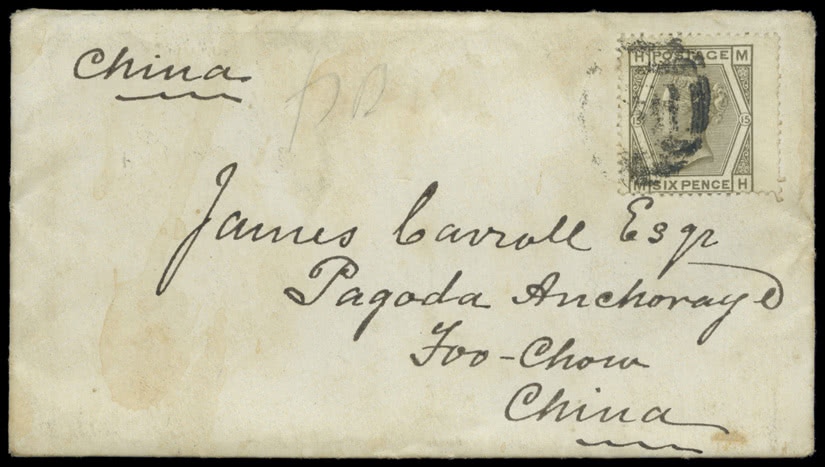 China
H POSTAGE M
15 15
M SIX PENCE H
James Carroll Esqr
Pagoda Anchorage
Foo-Chow
China